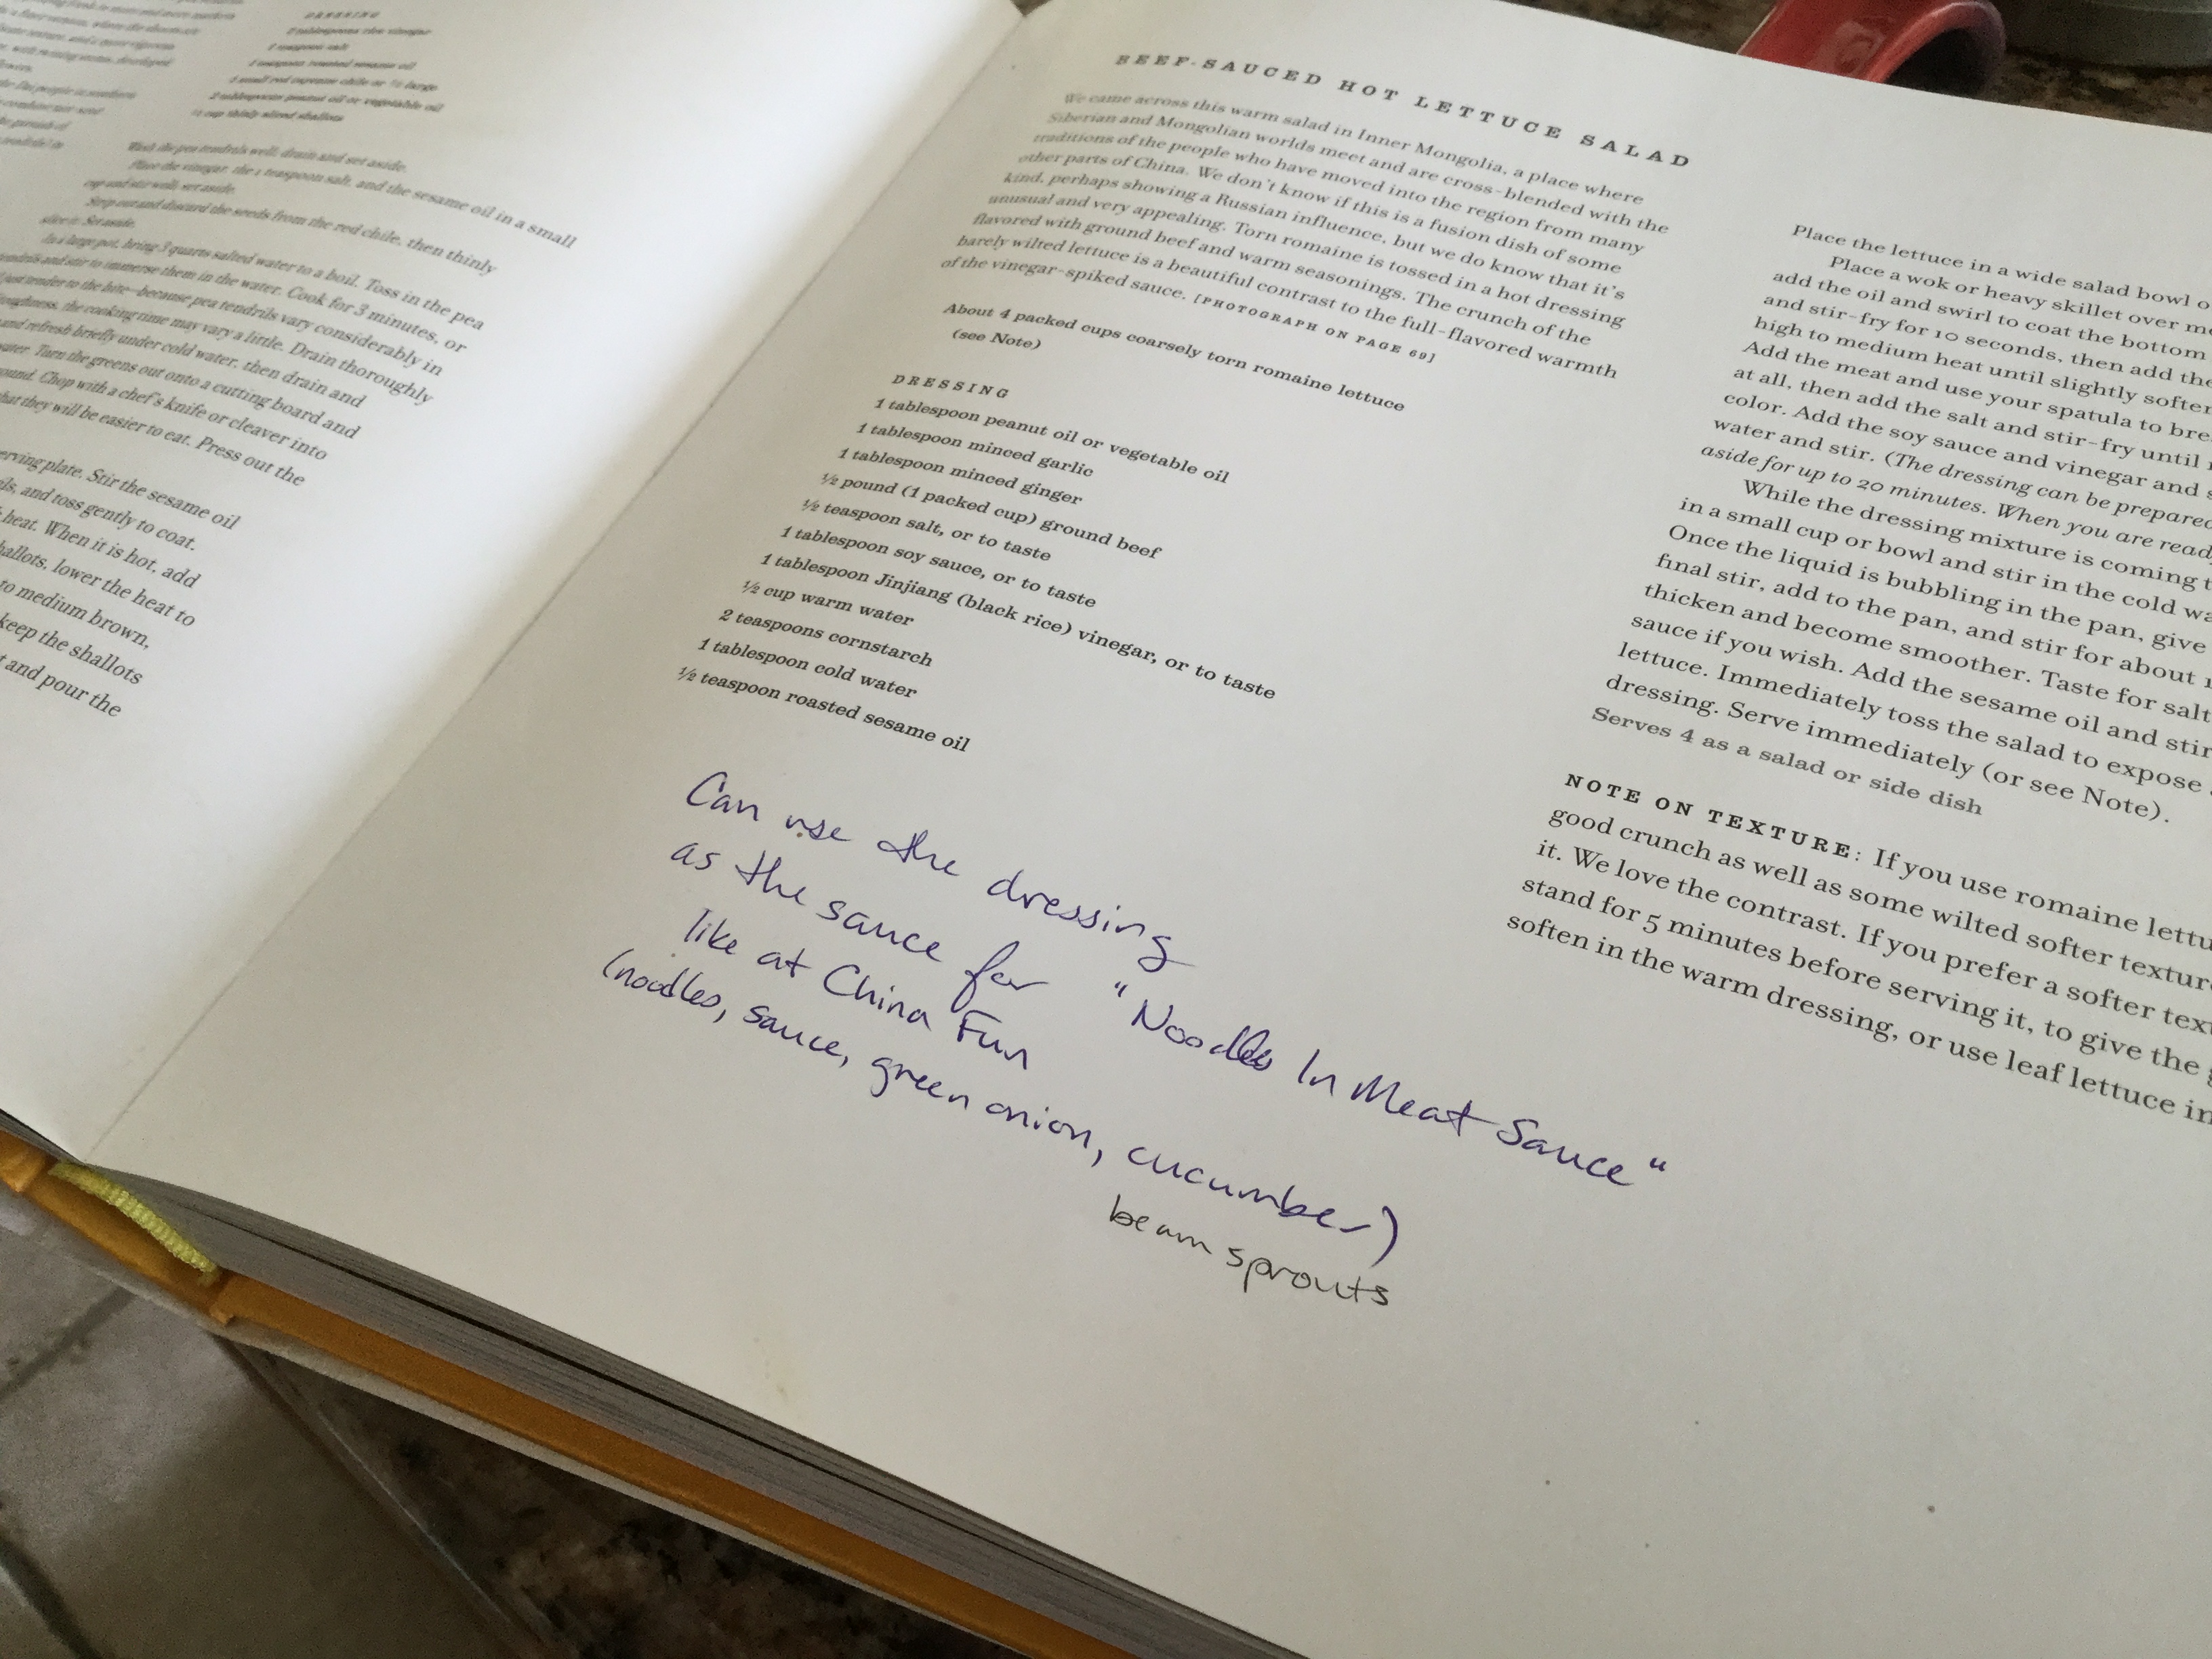 DRESSING
2 tablespoons rice vinegar
1 teaspoon salt
1 teaspoon roasted sesame oil
1 small red cayenne chile or ½ large
2 tablespoons peanut oil or vegetable oil
½ cup thinly sliced shallots
Wash the pea tendrils well; drain and set aside.
Place the vinegar, the 1 teaspoon salt, and the sesame oil in a small
cup and stir well; set aside.
Strip out and discard the seeds from the red chile, then thinly
slice it. Set aside.
In a large pot, bring 3 quarts salted water to a boil. Toss in the pea
tendrils and stir to immerse them in the water. Cook for 3 minutes, or
just tender to the bite—because pea tendrils vary considerably in
toughness, the cooking time may vary a little. Drain thoroughly
and refresh briefly under cold water, then drain and
water. Turn the greens out onto a cutting board and
Chop with a chef's knife or cleaver into
that they will be easier to eat. Press out the
serving plate. Stir the sesame oil
and toss gently to coat.
heat. When it is hot, add
shallots, lower the heat to
to medium brown,
keep the shallots
and pour the
BEEF-SAUCED HOT LETTUCE SALAD
We came across this warm salad in Inner Mongolia, a place where
Siberian and Mongolian worlds meet and are cross-blended with the
traditions of the people who have moved into the region from many
other parts of China. We don't know if this is a fusion dish of some
kind, perhaps showing a Russian influence, but we do know that it's
unusual and very appealing. Torn romaine is tossed in a hot dressing
flavored with ground beef and warm seasonings. The crunch of the
barely wilted lettuce is a beautiful contrast to the full-flavored warmth
of the vinegar-spiked sauce. [PHOTOGRAPH ON PAGE 69]
About 4 packed cups coarsely torn romaine lettuce
(see Note)
DRESSING
1 tablespoon peanut oil or vegetable oil
1 tablespoon minced garlic
1 tablespoon minced ginger
½ pound (1 packed cup) ground beef
½ teaspoon salt, or to taste
1 tablespoon soy sauce, or to taste
1 tablespoon Jinjiang (black rice) vinegar, or to taste
½ cup warm water
2 teaspoons cornstarch
1 tablespoon cold water
½ teaspoon roasted sesame oil
Can use the dressing
as the sauce for "Noodles In Meat Sauce"
like at China Fun
(noodles, sauce, green onion, cucumber)
bean sprouts
Place the lettuce in a wide salad bowl
Place a wok or heavy skillet over
add the oil and swirl to coat the bottom
and stir-fry for 10 seconds, then add the
high to medium heat until slightly
Add the meat and use your spatula to
at all, then add the salt and stir-fry until
color. Add the soy sauce and vinegar and
water and stir. (The dressing can be prepared
aside for up to 20 minutes. When you are
While the dressing mixture is coming
in a small cup or bowl and stir in the cold
Once the liquid is bubbling in the pan, give
final stir, add to the pan, and stir for about
thicken and become smoother. Taste for salt
sauce if you wish. Add the sesame oil and stir
lettuce. Immediately toss the salad to expose
dressing. Serve immediately (or see Note).
Serves 4 as a salad or side dish
NOTE ON TEXTURE: If you use romaine
good crunch as well as some wilted softer
it. We love the contrast. If you prefer a softer
stand for 5 minutes before serving it, to give the
soften in the warm dressing, or use leaf lettuce